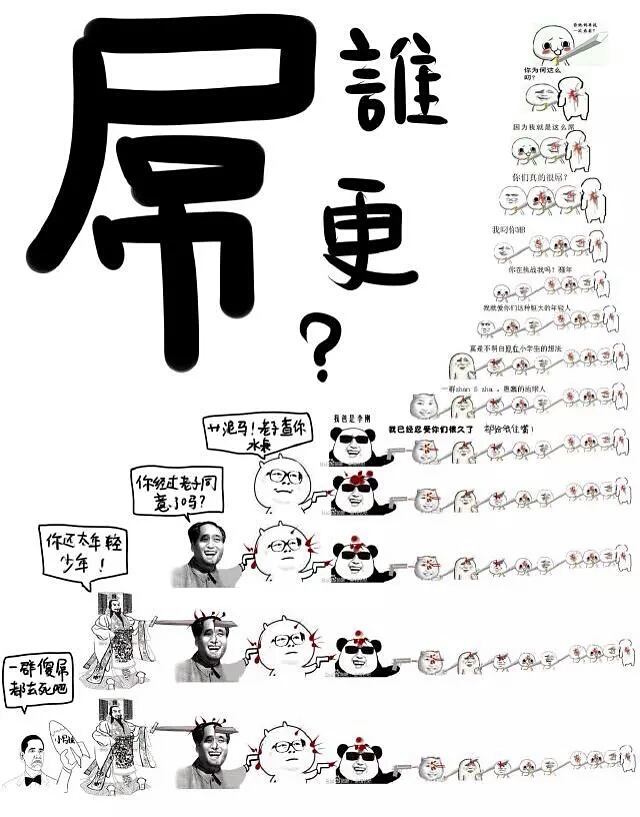 屌
誰
更
?
你为何这么
叼?
因为我就是这么屌
你们真的很屌?
我叼你
你在挑战我吗? 骚年
我就爱你们这种胆大的年轻人
真是不明白现在小学生的想法
一群shan B sha,愚蠢的地球人
我爸是李刚
我已经忍受你们很久了
都给我住嘴!
艹泥马!老子查你
水表
你经过老子同
意了吗?
你还太年轻
少年!
一群傻屌
都去死吧